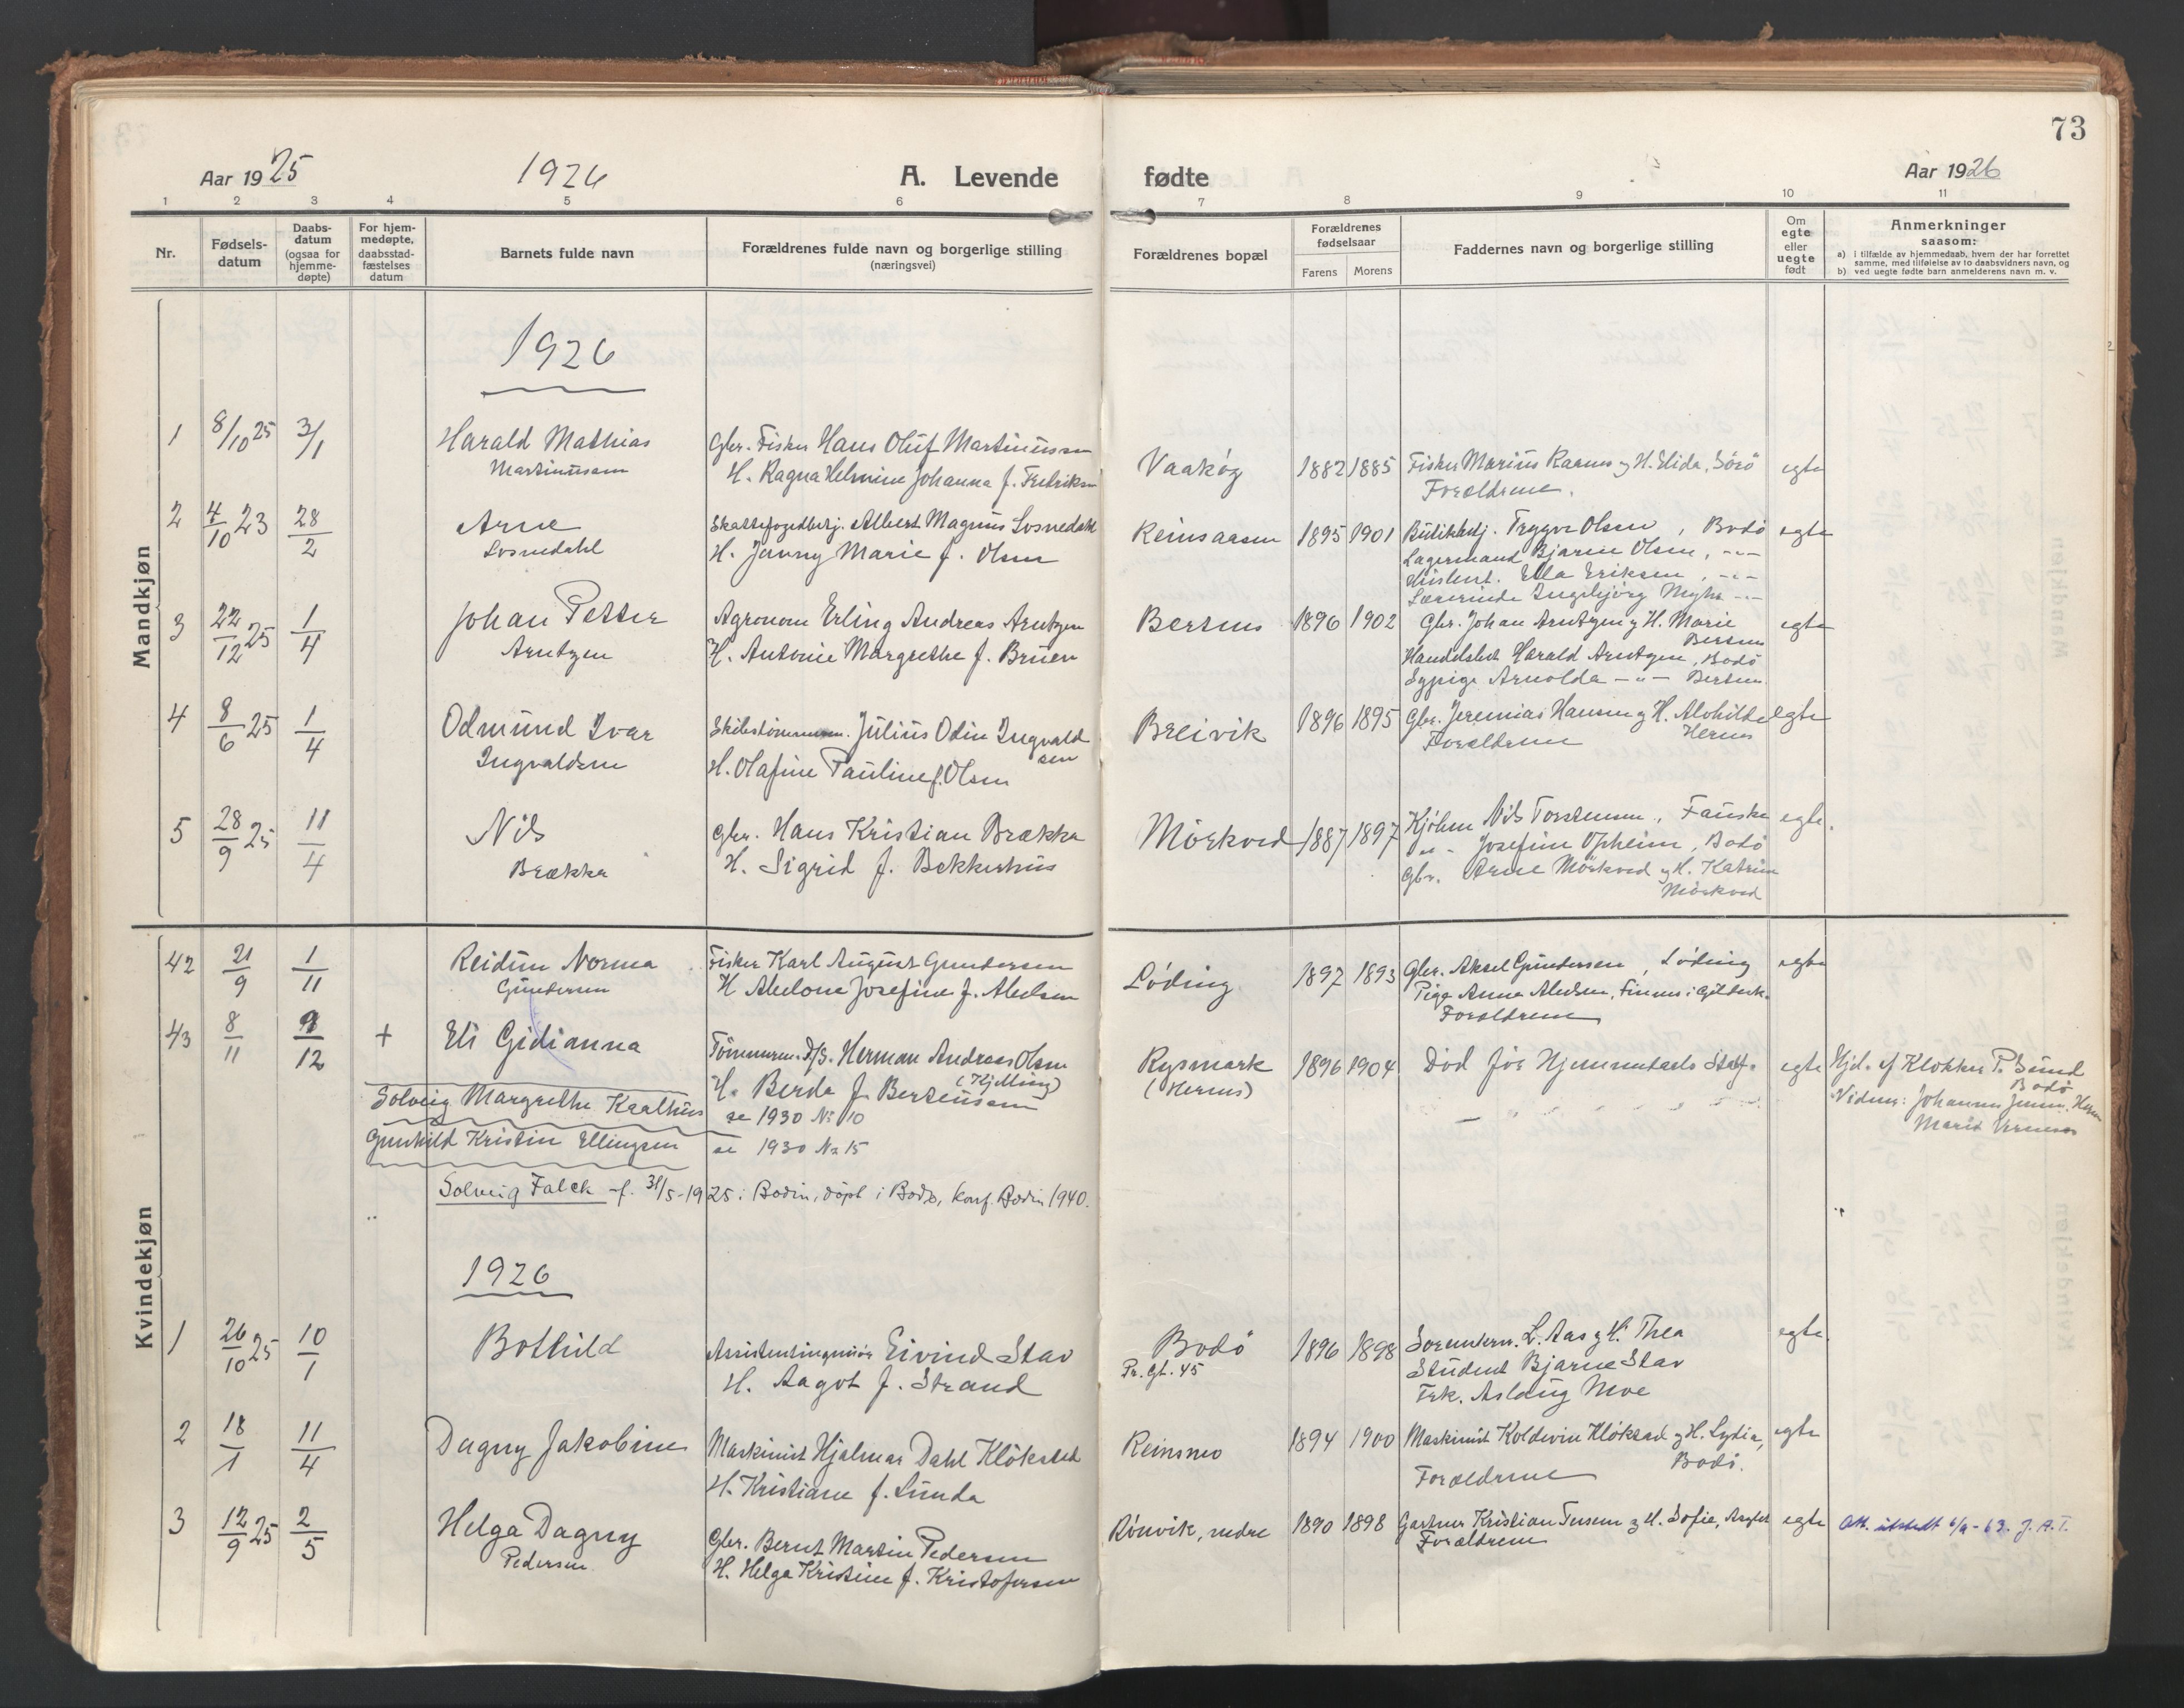 73
Aar 1925
1926
A. Levende fødte
Aar 1926
1 2 3 4 5 6 7 8 9 10 11
Nr.
Fødsels-
datum
Daabs-
datum
(ogsaa for
hjemme-
døpte)
For hjem-
medøpte,
daabsstad-
fæstelses
datum
Barnets fulde navn
Forældrenes fulde navn og borgerlige stilling
(næringsvei)
Forældrenes bopæl
Forældrenes
fødselsaar
Farens
Morens
Faddernes navn og borgerlige stilling
Om
egte
eller
uegte
født
Anmerkninger
saasom:
a) i tilfælde av hjemmedaab, hvem der har forrettet
samme, med tilføielse av to daabsvidners navn, og
b) ved uegte fødte barn anmelderens navn m. v.
Mandkjøn
1926
1 8/10 25 3/1 Harald Mathias Gbr. Fisker Hans Oluf Martinussen
Martinussen H. Ragna Helmine Johanna f. Fredriksen
Vaakøg 1882 1885 Fisker Marius og H. Elida, Sørø egte
Forældrene.
2 4/10 23 28/2 Arne Skattefogedbetj. Albert Magnus Losnedahl
Losnedahl H. Jenny Marie f. Olsen
Reinsaasen 1895 1901 Butikbetj. Trygve Olsen, Bodø egte
Lagermand Bjarne Olsen, -"-
Ella Eriksen, -"-
Lærerinde Ingebjørg -"-
3 22/12 25 1/4 Johan Petter Agronom Erling Andreas Arntzen
Arntzen H. Antonie Margrethe f. Bruen
Bertnes 1896 1902 Gbr. Johan Arntzen og H. Marie egte
Bertnes
Harald Arntzen, Bodø
Sypige Arnolda -"- Bertnes
4 8/6 25 1/4 Odmund Ivar Skibstømmerm. Julius Odin Ingvald
sen
Ingvaldsen H. Olafine Pauline f. Olsen
Breivik 1896 1895 Gbr. Jeremias Hansen og H. Alvhilde egte
Forældrene Hernes
5 28/9 25 11/4 Nils Gbr. Hans Kristian Brækka
Brækka H. Sigrid f. Bekkerhus
Mørkved 1887 1897 Nils Torstensen, Fauske egte.
-"- Josefine Opheim, Bodø
Gbr. Arne Mørkved og H. Katrine
Mørkved
Kvindekjøn
42 21/9 1/11 Reidun Norma Fisker Karl August Gundersen
Gundersen H. Abelone Josefine f. Abelsen
Løding 1897 1893 Gbr. Aksel Gundersen, Løding egte
Pige Anna Abelsen, Finnes i Gildesk.
Forældrene
43 8/11 9/12 + Eli Gidianna Tømmerm. D/S. Herman Andreas Olsen
(Kjelling)
H. Berda f. Berteussen
Rysmark 1896 1904 Død før Hjemmedaabs Stadf. egte
(Hernes)
Hjd. af Klokker P. Sund
Bodø
Vidner: Johannes Jensen, Hernes
Marit
Solveig Margrethe Kaathus se 1930 No 10
Gunhild Kristin Ellingsen se 1930 No 15
Solveig Falck f. 31/5-1925 i Bodin, døpt i Bodø, konf. Bodin 1940.
1926
1 26/10 25 10/1 Bothild Assistentingeniør Eivind Stav
H. Aagot f. Strand
Bodø 1896 1898 L. Aas og H. Thea egte.
Pr. gt. 45 Student Bjarne Stav
Frk. Aslaug Moe
2 18/1 11/4 Dagny Jakobine Maskinist Hjalmar Dahl Kløkstad
H. Kristiane f. Lunda
Reinsmo 1894 1900 Maskinist Koldevin Kløkstad og H. Lydia, egte
Bodø.
Forældrene
3 12/9 25 2/5 Helga Dagny Gbr. Bernt Martin Pedersen
Pedersen H. Helga Kristine f. Kristofersen
Rønvik, nedre 1890 1898 Gartner Kristian Tusem og H. Sofie, Asylet egte
Forældrene
Att. utstedt 6/9-63. J.A.T.